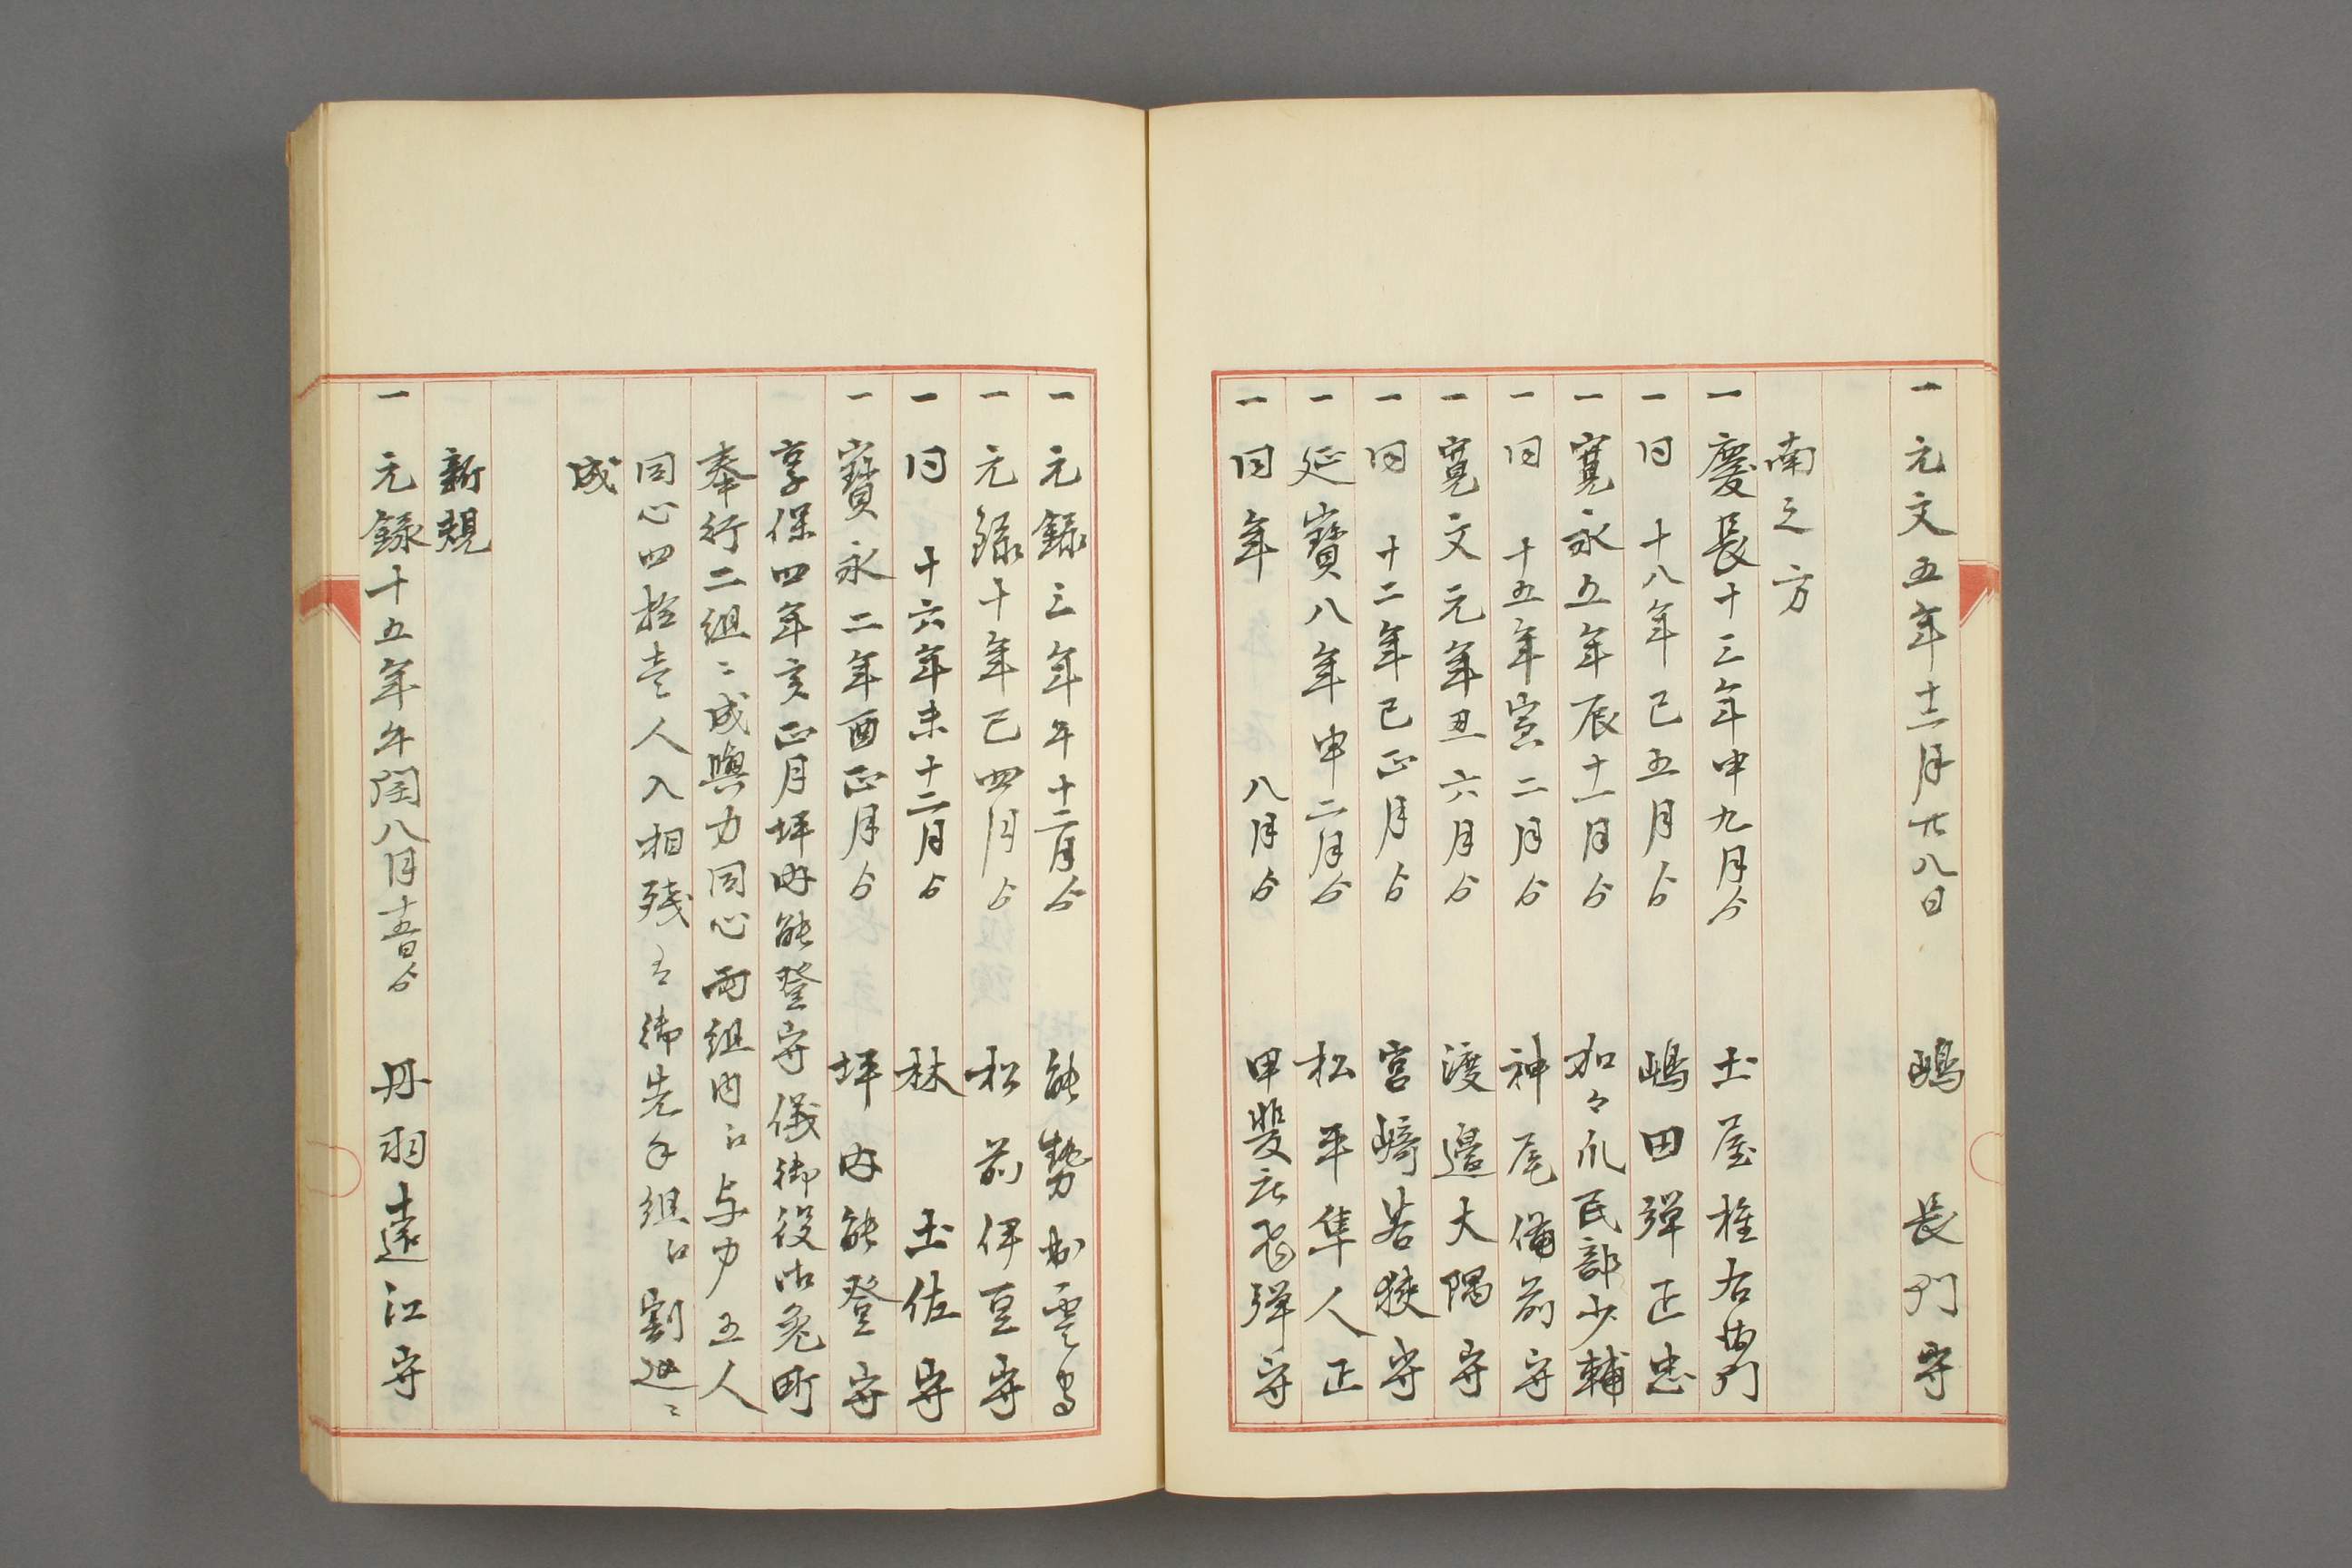 一 元文五年十二月廿八日 嶋長門守
南之方
一 慶長十三年申九月ゟ 土屋権右衛門
一 同 十八年巳五月ゟ 嶋田弾正忠
一 寛永五年辰十一月ゟ 加々爪民部少輔
一 同 十五年寅二月ゟ 神尾備前守
一 寛文元年丑六月ゟ 渡邉大隅守
一 同 十二年巳正月ゟ 宮﨑若狭守
一 延寳八年申二月ゟ 松平隼人正
一 同年 八月ゟ 甲斐庄飛弾守
一 元録三年午十二月ゟ 能勢出雲守
一 元録十年巳四月ゟ 松前伊豆守
一 同 十六年未十二月ゟ 林土佐守
一 寳永二年酉正月ゟ 坪内能登守
享保四年亥正月坪内能登守儀御役御免町
奉行二組ニ成與力同心両組内江与力五人
同心四拾壱人入相残者御先手組江割込ニ
成
新規
一 元録十五年午閏八月十五日ゟ 丹羽遠江守